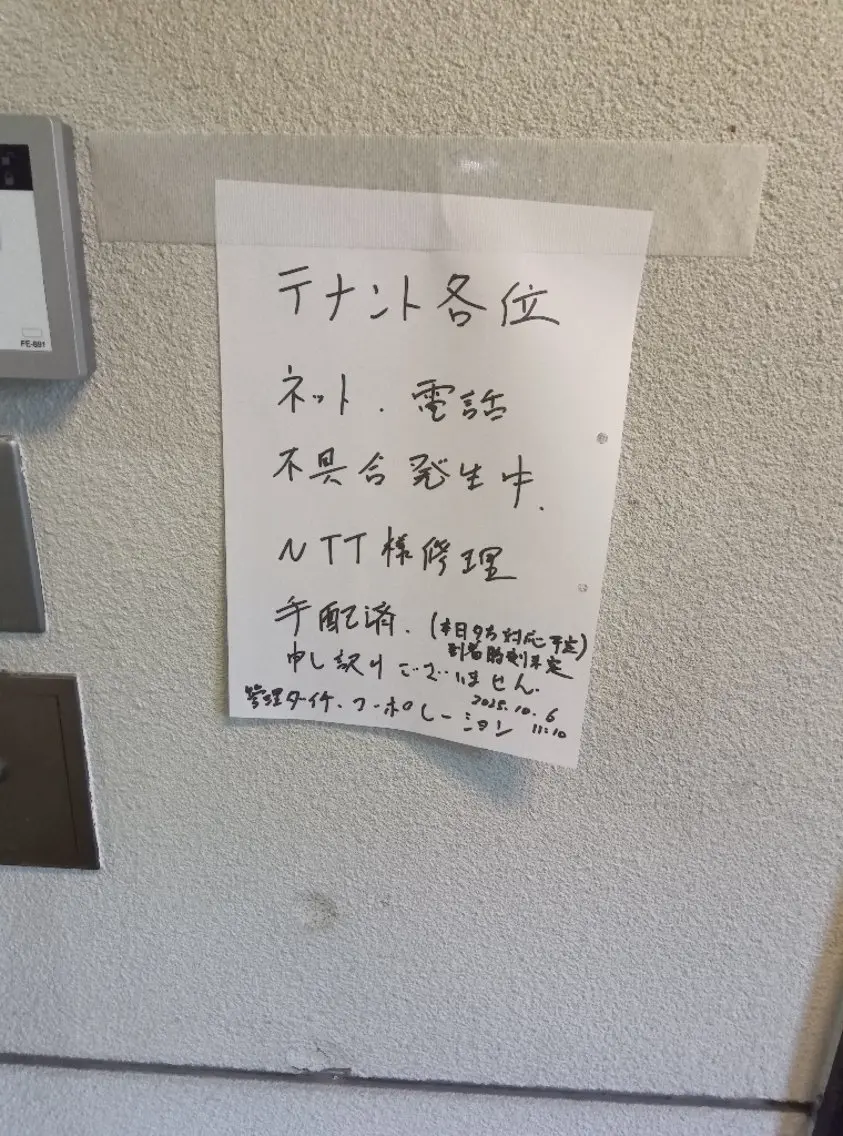 FE-691
テナント各位
ネット.電話
不具合発生中.
NTT様修理
手配済.(本日夕方対応予定)
到着時刻未定
申し訳りございません.
2025.10.6
管理ダイケ.コーポレーション 11:10